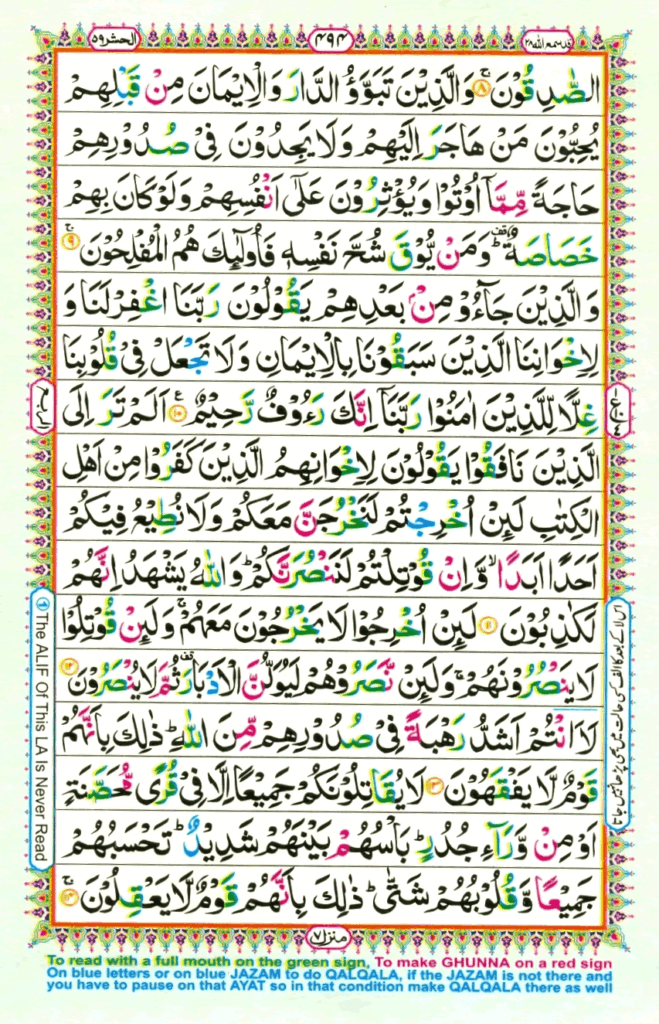 قد سمع الله ٢٨
٤٩٤
الحشر ٥٩
الصّٰدِقُوْنَ ۚ‏﴿۸﴾ وَالَّذِيْنَ تَبَوَّؤُ الدَّارَ وَالْاِيْمَانَ مِنْ قَبْلِهِمْ
يُحِبُّوْنَ مَنْ هَاجَرَ اِلَيْهِمْ وَلَا يَجِدُوْنَ فِىْ صُدُوْرِهِمْ
حَاجَةً مِّمَّاۤ اُوْتُوْا وَيُؤْثِرُوْنَ عَلٰٓى اَنْفُسِهِمْ وَلَوْ كَانَ بِهِمْ
خَصَاصَةٌ ؕ وَمَنْ يُّوْقَ شُحَّ نَفْسِهٖ فَاُولٰٓٮِٕكَ هُمُ الْمُفْلِحُوْنَ ۚ‏﴿۹﴾
وَالَّذِيْنَ جَآءُوْ مِنْۢ بَعْدِهِمْ يَقُوْلُوْنَ رَبَّنَا اغْفِرْ لَنَا وَ
لِاِخْوَانِنَا الَّذِيْنَ سَبَقُوْنَا بِالْاِيْمَانِ وَلَا تَجْعَلْ فِىْ قُلُوْبِنَا
غِلًّا لِّلَّذِيْنَ اٰمَنُوْا رَبَّنَاۤ اِنَّكَ رَءُوْفٌ رَّحِيْمٌ‏﴿۱۰﴾ اَلَمْ تَرَ اِلَى
الَّذِيْنَ نَافَقُوْا يَقُوْلُوْنَ لِاِخْوَانِهِمُ الَّذِيْنَ كَفَرُوْا مِنْ اَهْلِ
الْكِتٰبِ لَٮِٕنْ اُخْرِجْتُمْ لَنَخْرُجَنَّ مَعَكُمْ وَلَا نُطِيْعُ فِيْكُمْ
اَحَدًا اَبَدًا ۙ وَّاِنْ قُوْتِلْتُمْ لَنَنْصُرَنَّكُمْ ؕ وَاللّٰهُ يَشْهَدُ اِنَّهُمْ
لَكٰذِبُوْنَ‏﴿۱۱﴾ لَٮِٕنْ اُخْرِجُوْا لَا يَخْرُجُوْنَ مَعَهُمْ ۚ وَلَٮِٕنْ قُوْتِلُوْا
لَا يَنْصُرُوْنَهُمْ ۚ وَلَٮِٕنْ نَّصَرُوْهُمْ لَيُوَلُّنَّ الْاَدْبَارَ ثُمَّ لَا يُنْصَرُوْنَ‏﴿۱۲﴾
لَا۟اَنْتُمْ اَشَدُّ رَهْبَةً فِىْ صُدُوْرِهِمْ مِّنَ اللّٰهِ ؕ ذٰلِكَ بِاَنَّهُمْ
قَوْمٌ لَّا يَفْقَهُوْنَ‏﴿۱۳﴾ لَا يُقَاتِلُوْنَكُمْ جَمِيْعًا اِلَّا فِىْ قُرًى مُّحَصَّنَةٍ
اَوْ مِنْ وَّرَآءِ جُدُرٍ ؕ بَاْسُهُمْ بَيْنَهُمْ شَدِيْدٌ ؕ تَحْسَبُهُمْ
جَمِيْعًا وَّقُلُوْبُهُمْ شَتّٰى ؕ ذٰلِكَ بِاَنَّهُمْ قَوْمٌ لَّا يَعْقِلُوْنَ ۚ‏﴿۱۴﴾
The ALIF Of This LA Is Never Read
منزل ۷
To read with a full mouth on the green sign, To make GHUNNA on a red sign
On blue letters or on blue JAZAM to do QALQALA, if the JAZAM is not there and
you have to pause on that AYAT so in that condition make QALQALA there as well